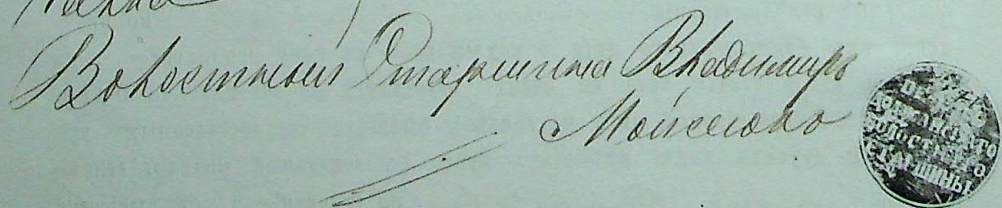 Волостный Старшина Владимиръ
Мойсеюко
ВОЛОСТНОГО
СТАРШИНЫ